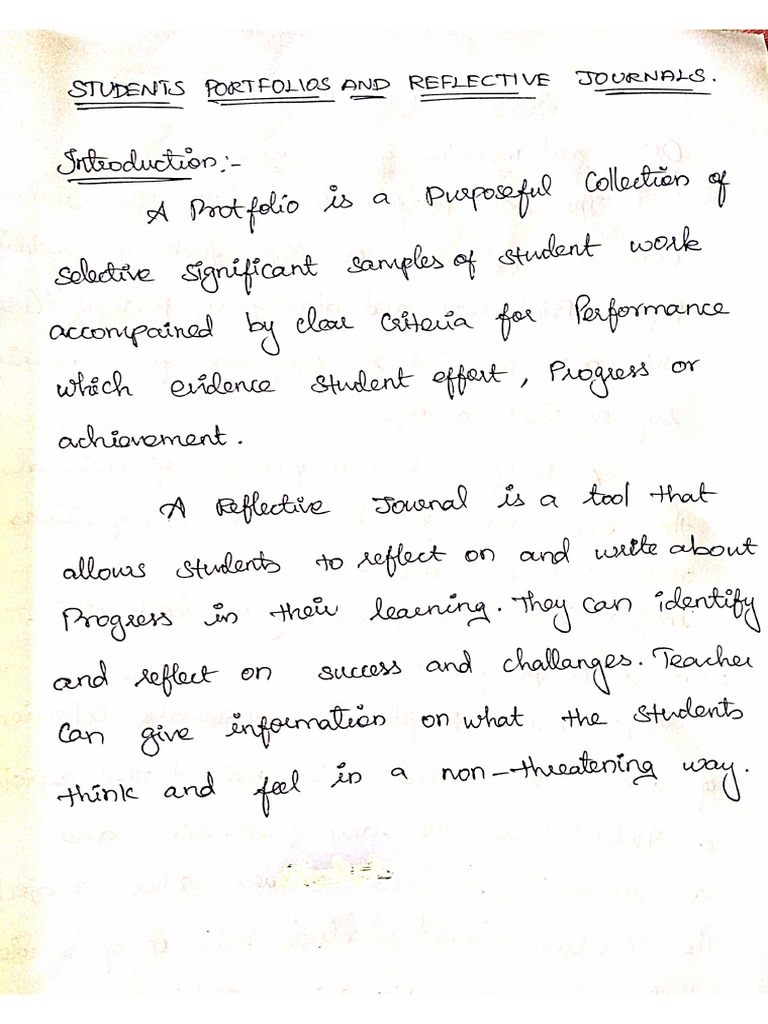 STUDENTS PORTFOLIOS AND REFLECTIVE JOURNALS.
Introduction:-
A Protfolio is a Purposeful Collection of
selective significant samples of student work
accompained by clear Criteria for Performance
which evidence student effort, Progress or
achievement.
A Reflective Journal is a tool that
allows students to reflect on and write about
Progress in their learning. They can identify
and reflect on success and challanges. Teacher
Can give information on what the students
think and feel in a non-threatening way.